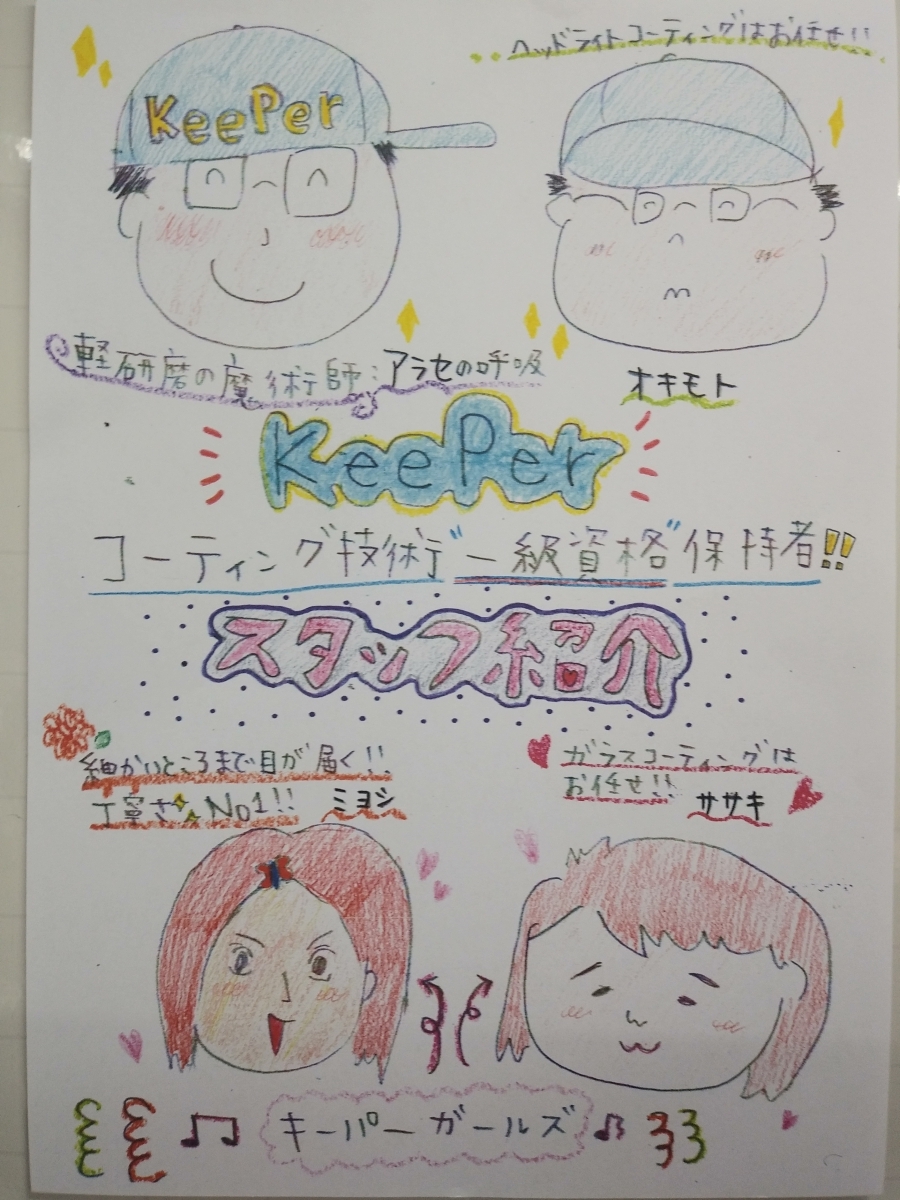 ヘッドライトコーティングはお任せ!!
KeePer
軽研磨の魔術師:アラセの呼吸
オキモト
KeePer
コーティング技術"一級資格"保持者!!
スタッフ紹介
細かいところまで目が届く!!
丁寧さNo1!! ミヨシ
ガラスコーティングは
お任せ!! ササキ
キーパーガールズ